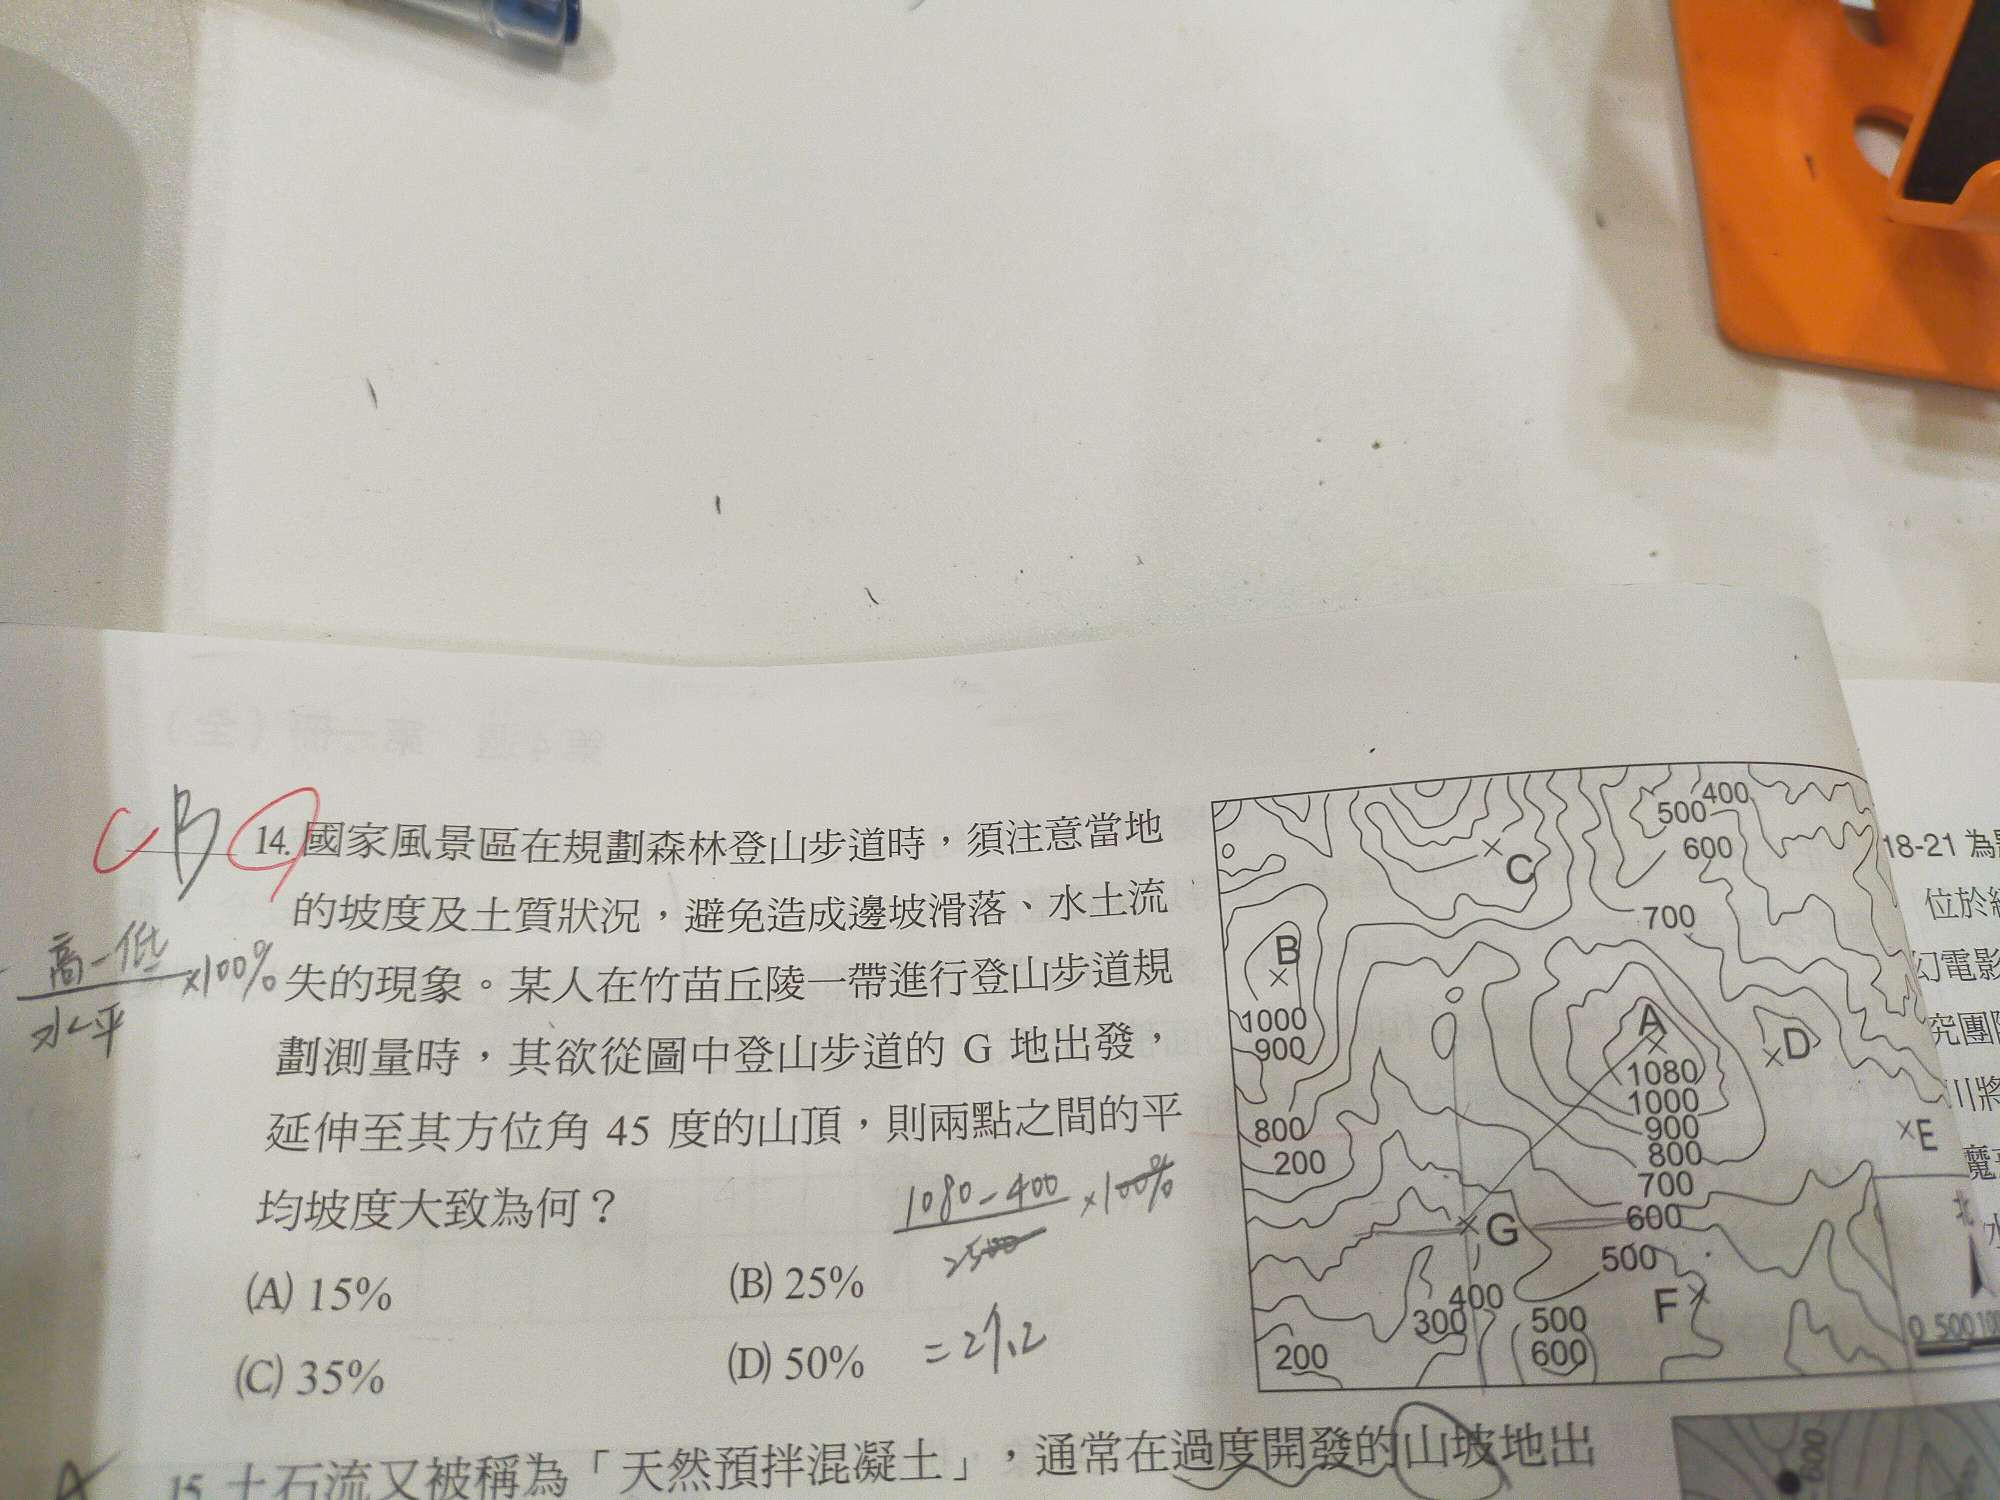 C B
14. 國家風景區在規劃森林登山步道時，須注意當地
的坡度及土質狀況，避免造成邊坡滑落、水土流
失的現象。某人在竹苗丘陵一帶進行登山步道規
劃測量時，其欲從圖中登山步道的 G 地出發，
延伸至其方位角 45 度的山頂，則兩點之間的平
均坡度大致為何？
(A) 15%
(B) 25%
(C) 35%
(D) 50%
高-低
水平
×100%
1080-400
2500
×100%
=27.2
500 400
600
C
700
B
1000
900
800
200
A
1080
1000
900
800
700
600
500
D
E
G
400
300
500
600
F
200
北
0 500 100
18-21 為
位於
幻電影
究團
川將
魔
水
15. 土石流又被稱為「天然預拌混凝土」，通常在過度開發的山坡地出
600